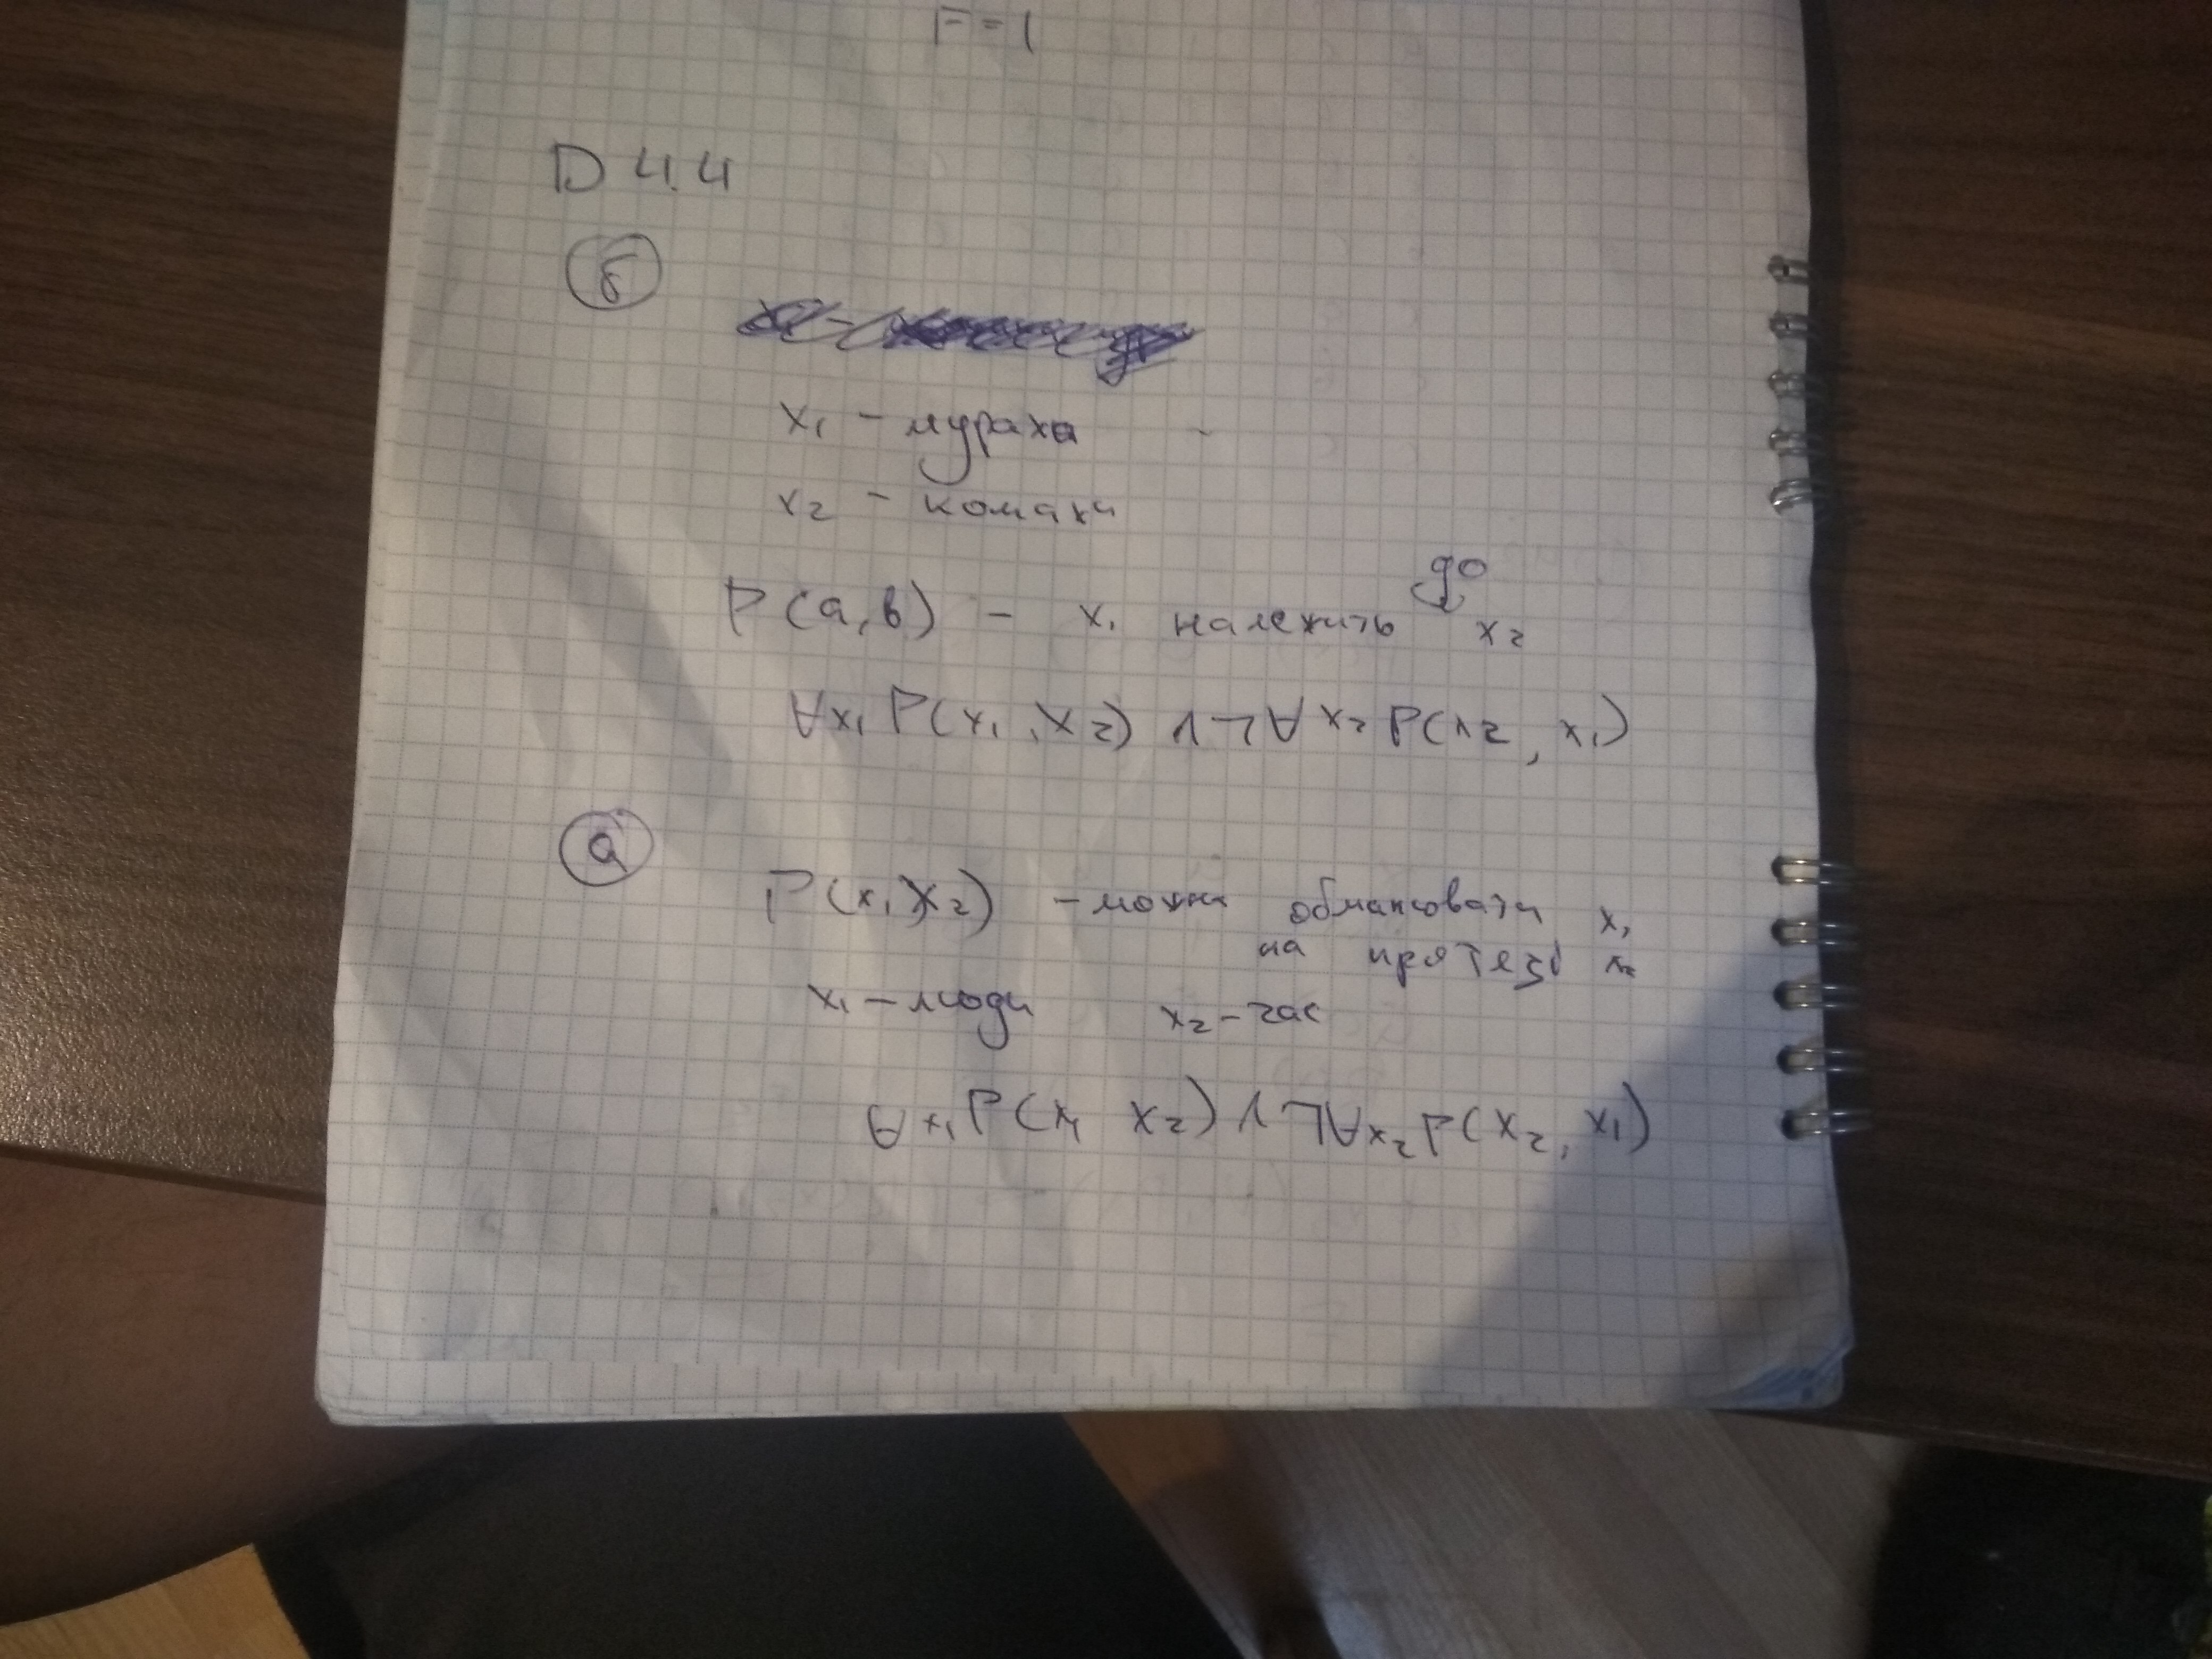 F=1
D 4.4
б
x₁ - мураха
x₂ - комахи
P(a,b) - x₁ належить до x₂
∀x₁ P(x₁,x₂) ∧ ¬∀x₂ P(x₂, x₁)
а
P(x₁,x₂) - можна обмансовати x₁
на протязі x₂
x₁ - люди x₂ - час
∀x₁ P(x₁ x₂) ∧ ¬∀x₂ P(x₂, x₁)